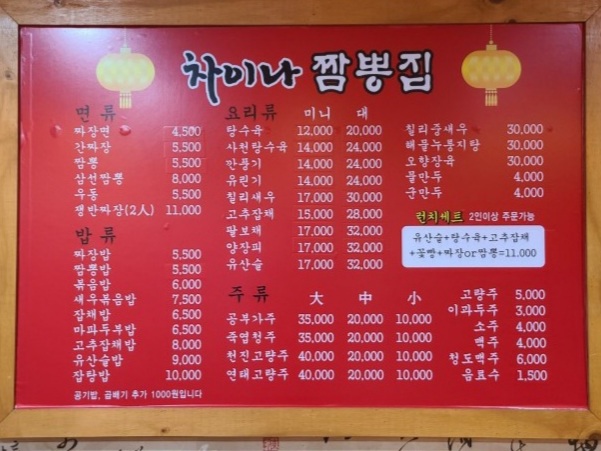 차이나 짬뽕집
면 류
짜장면 4,500
간짜장 5,500
짬뽕 5,500
삼선짬뽕 8,000
우동 5,500
쟁반짜장(2人) 11,000
밥 류
짜장밥 5,500
짬뽕밥 5,500
볶음밥 6,000
새우볶음밥 7,500
잡채밥 6,500
마파두부밥 6,500
고추잡채밥 8,000
유산슬밥 9,000
잡탕밥 10,000
공기밥, 곱빼기 추가 1000원입니다
요리류 미니 대
탕수육 12,000 20,000
사천탕수육 14,000 24,000
깐풍기 14,000 24,000
유린기 14,000 24,000
칠리새우 17,000 30,000
고추잡채 15,000 28,000
팔보채 17,000 32,000
양장피 17,000 32,000
유산슬 17,000 32,000
칠리중새우 30,000
해물누룽지탕 30,000
오향장육 30,000
물만두 4,000
군만두 4,000
런치세트 2인이상 주문가능
유산슬+탕수육+고추잡채
+꽃빵+짜장or짬뽕=11.000
주 류 大 中 小
공부가주 35,000 20,000 10,000
죽엽청주 35,000 20,000 10,000
천진고량주 40,000 20,000 10,000
연태고량주 40,000 20,000 10,000
고량주 5,000
이과두주 3,000
소주 4,000
맥주 4,000
청도맥주 6,000
음료수 1,500